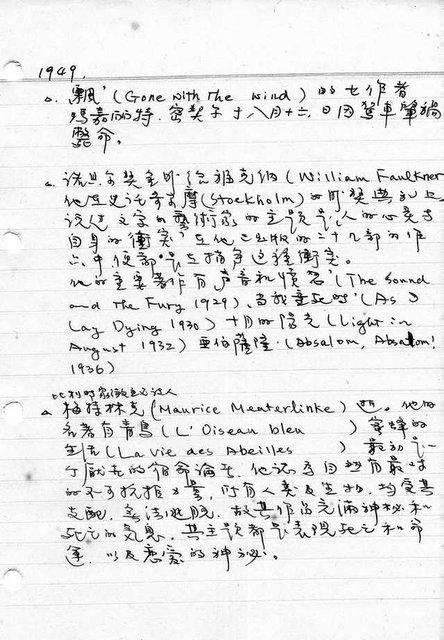 1949.
飄'(Gone with The wind) 的女作者
瑪嘉麗特.密契爾于八月十六日因駕車肇禍
斃命。
諾貝爾獎金頒給福克納(William Faulkner
他在斯托哥摩(Stockholm)的頒獎典禮上
說過文字的藝術家的主題是'人的心靈与
自身的衝突'在他已出版的二十九部的作
品中便部是在描寫這種衝突。
他的主要著作有声音和憤怒'(The Sound
and The Fury 1929)、當我垂死時'(As I
Lay Dying 1930) 十月的陽光(Light in
August 1932) 亞伯薩隆.(Absalom, Absalom!
1936)
比利時象徵主义詩人
梅特林克(Maurice Menterlinke)逝。他的
名著有青鳥(L'Oiseau bleu ) 蜜蜂的
生活(La Vie des Abeilles ) 最初是
的宿命論者.他認為自然有最大
的不可抗拒力量,所有人類及生物,均受其
支配,無法逃脫,故其作品充滿神秘和
死亡的氣息,其主題都是表現死亡和命
運,以及戀愛的神秘。